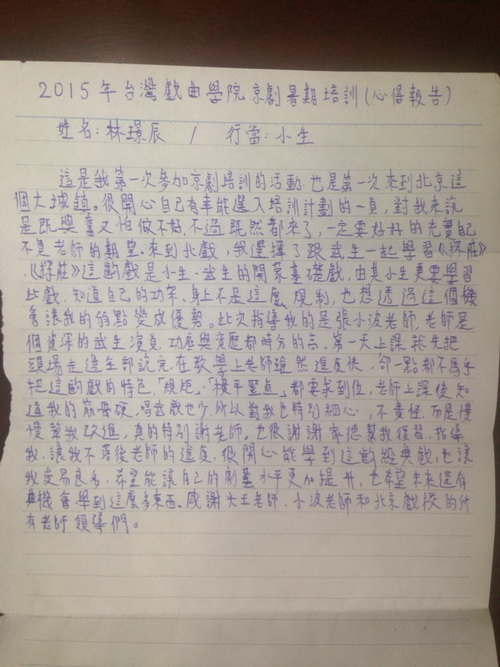 2015年台灣戲曲學院京劇暑期培訓(心得報告)
姓名:林璟辰 / 行當:小生
這是我第一次參加京劇培訓的活動,也是第一次來到北京這
個大城鎮。很開心自己有幸能選入培訓計劃的一員,對我來說
是既興奮又怕做不好,不過既然都來了,一定要好好的充實自己
不負老師的期望。來到北戲,我選擇了跟武生一起學習《探莊》
,《探莊》這齣戲是小生、武生的開蒙基礎戲,由其小生更要學習
此戲,知道自己的功架、身上不是這麼規制,也想透過這個機
會讓我的弱點變成優勢。此次指導我的是張小波老師,老師是
個資深的武生演員,功底與資歷都時分的高,第一天上課就先把
頭場走邊全部說完,在教學上老師雖然進度快,卻一點都不馬乎
把這齣戲的特色「規矩」、「橫平豎直」都要求到位,老師上課後知
道我的筋骨硬,唱武戲也少,所以對我也特別細心,不責怪,而是慢
慢幫我改進,真的特別謝老師。也很謝謝家德幫我復習、指導
我,讓我不落後老師的進度,很開心能學到這齣經典戲,也讓
我受易良多,希望能讓自己的劇藝水平更加提升,也希望未來還有
機會學到這麼多東西。感謝大王老師、小波老師和北京戲校的所
有老師領導們。